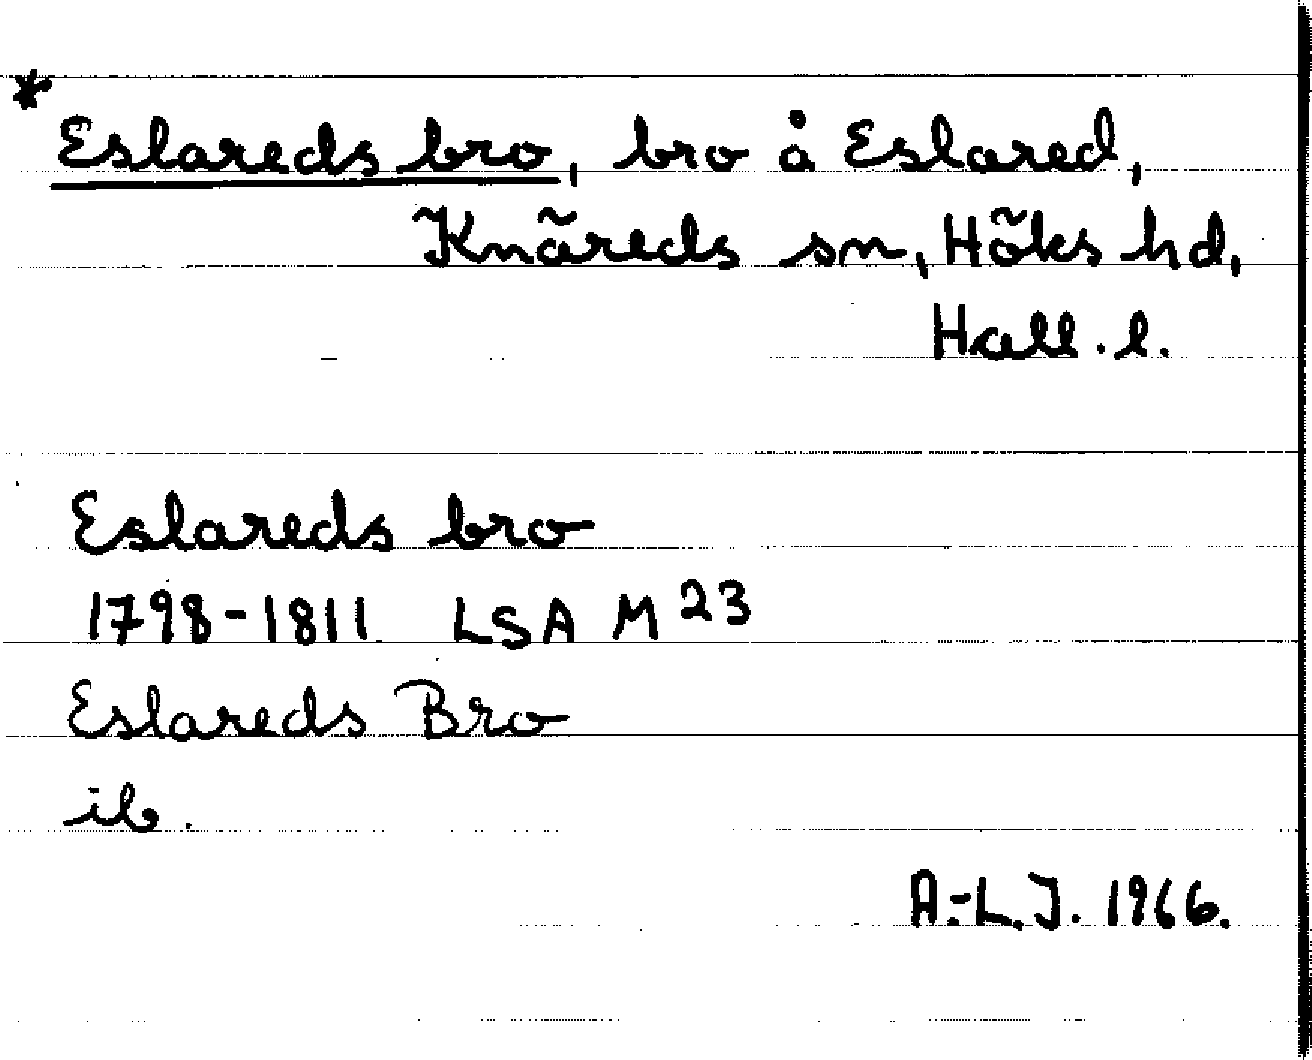 * Eslareds bro, bro å Eslared,
Knäreds sn, Höks hd,
Hall. l.
Eslareds bro
1798-1811 LSA M 23
Eslareds Bro
ib.
A.-L.J. 1966.